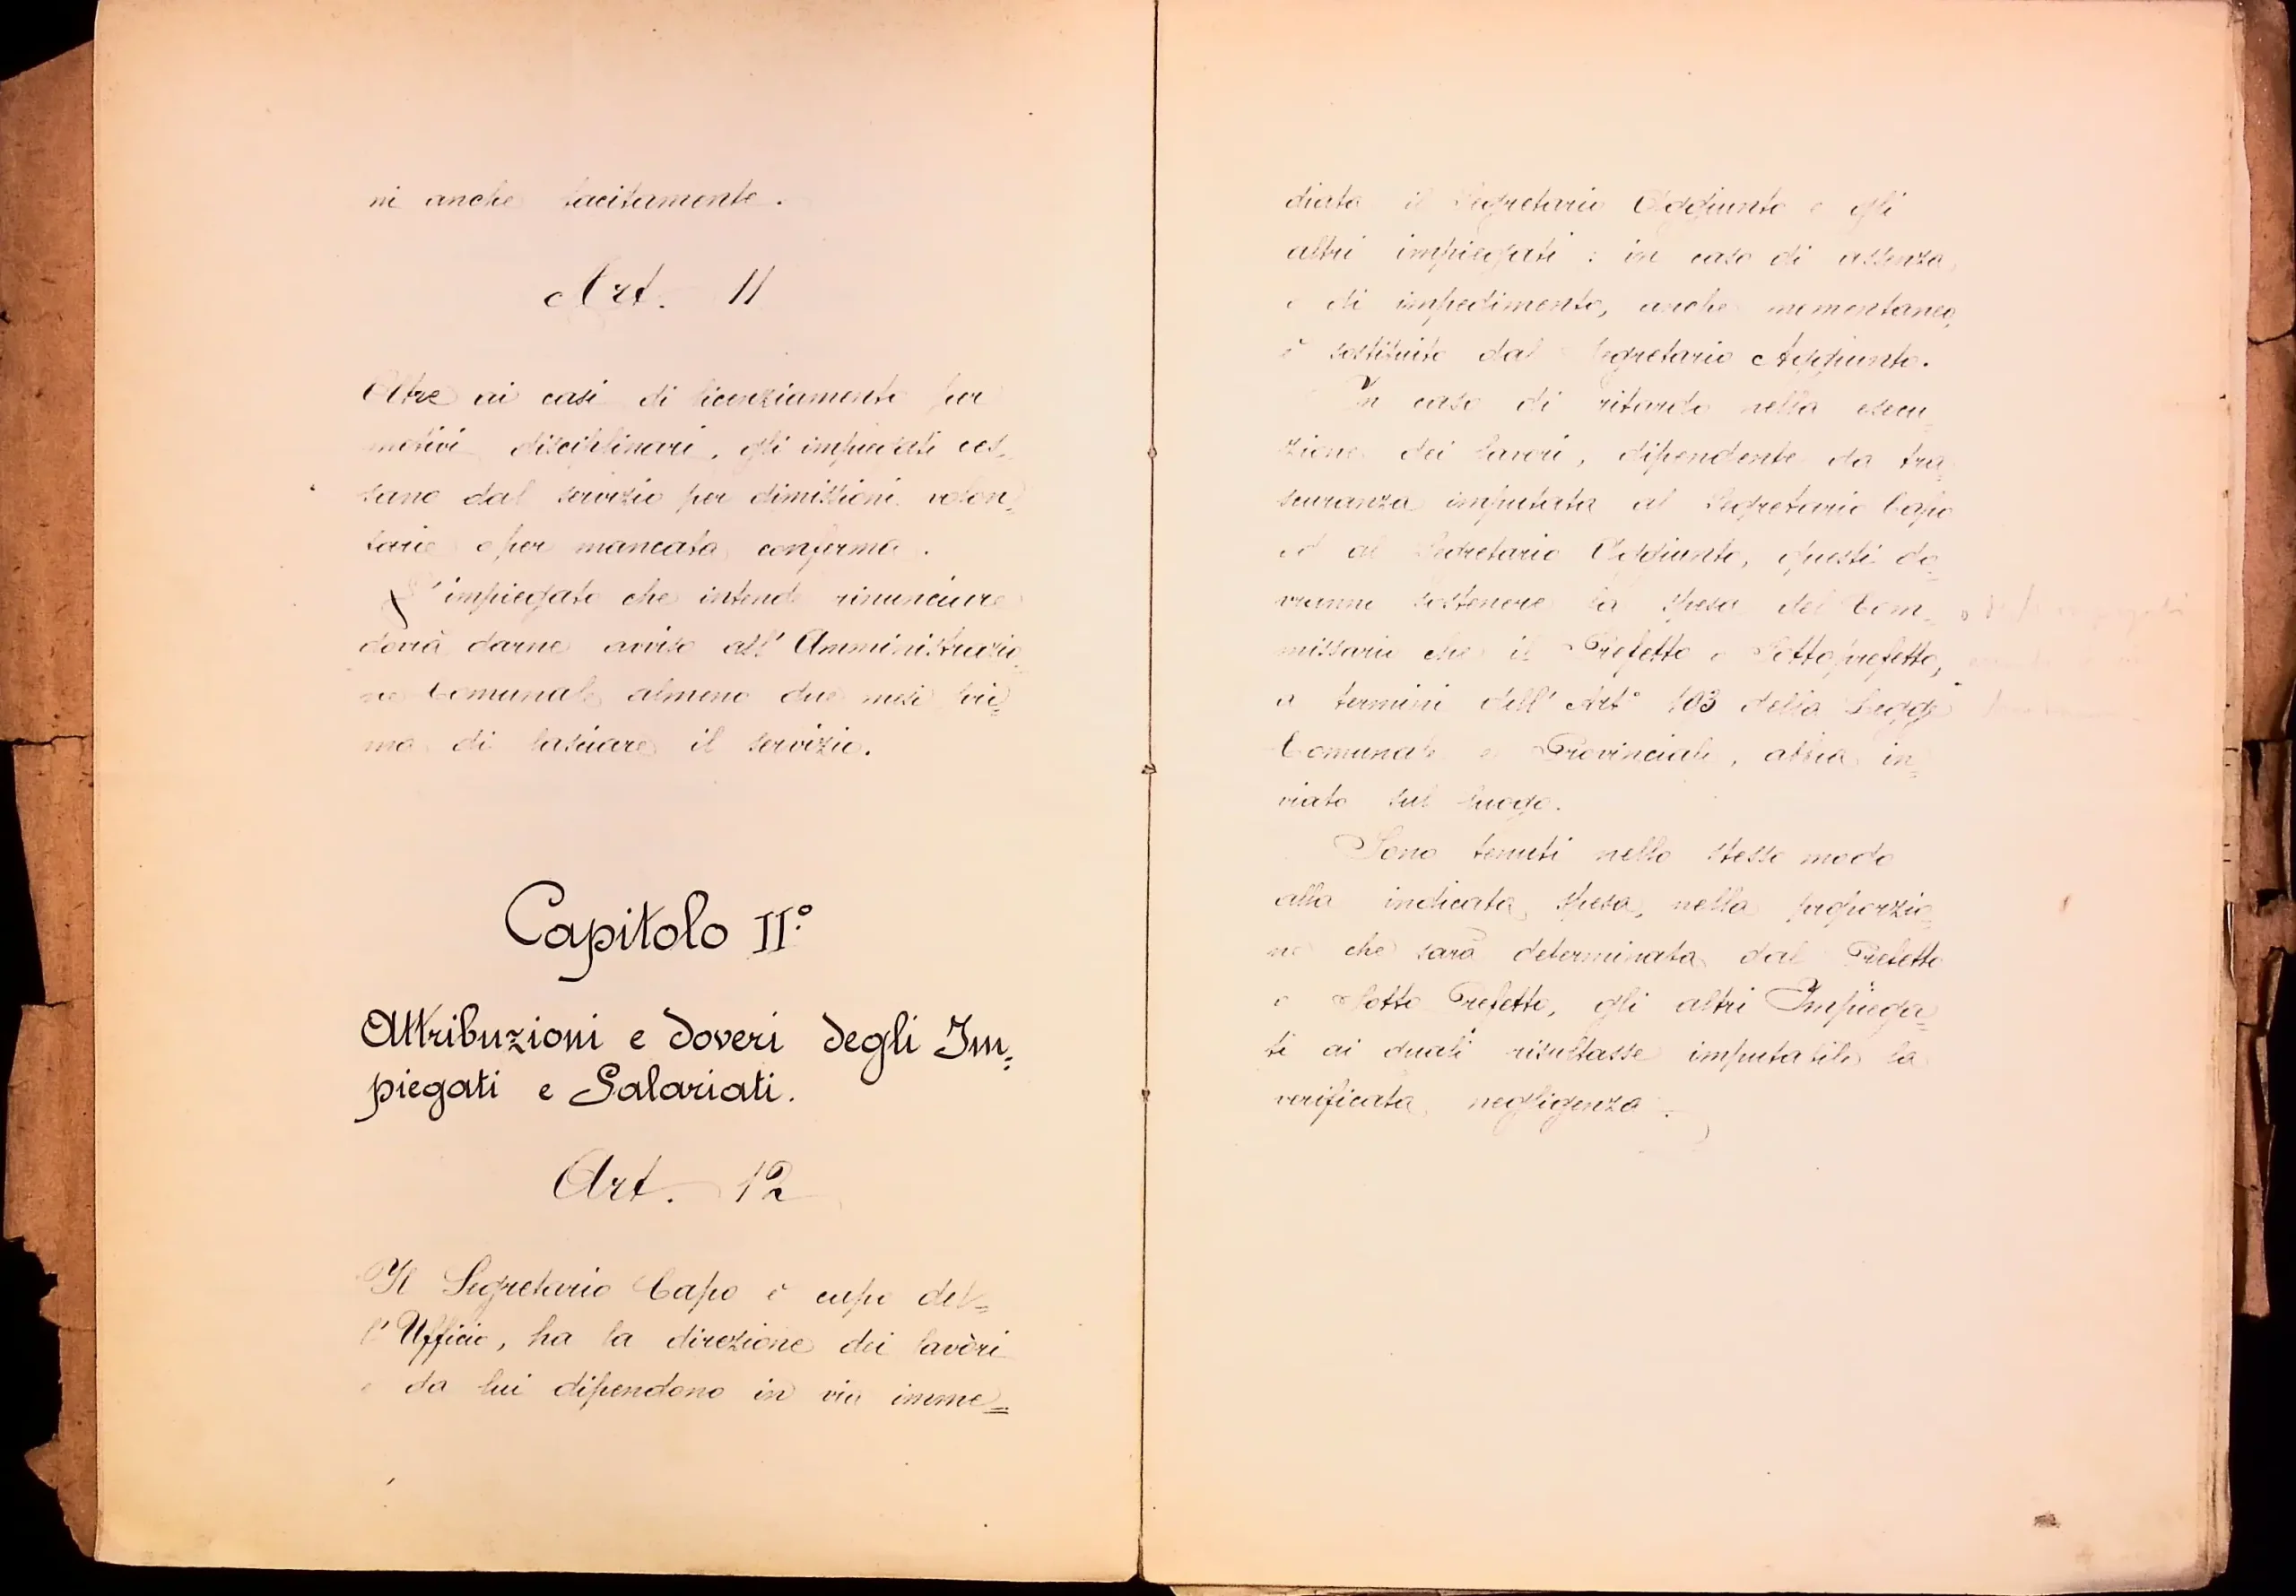 ni anche tacitamente.
Art. 11
Oltre ai casi di licenziamento per
motivi disciplinari, gli impiegati ces=
sano dal servizio per dimissioni volon=
tarie o per mancata conferma.
L'impiegato che intende rinunciare
dovrà darne avviso all'Amministrazio=
ne Comunale almeno due mesi pri=
ma di lasciare il servizio.
Capitolo II°
Attribuzioni e doveri degli Im=
piegati e Salariati.
Art. 12
Il Segretario Capo è capo del=
l'Ufficio, ha la direzione dei lavori
e da lui dipendono in via imme=
diata il Segretario Aggiunto e gli
altri impiegati: in caso di assenza,
o di impedimento, anche momentaneo,
è sostituito dal Segretario Aggiunto.
In caso di ritardo nella esecu=
zione dei lavori, dipendente da tra=
scuranza imputata al Segretario Capo
od al Segretario Aggiunto, questi do=
vranno sostenere la spesa del Com=
missario che il Prefetto o Sottoprefetto,
a termini dell'Art° 103 della Legge
Comunale e Provinciale, abbia in=
viato sul luogo.
Sono tenuti nello stesso modo
alla indicata spesa, nella proporzio=
ne che sarà determinata dal Prefetto
o Sotto Prefetto, gli altri Impiega=
ti ai quali risultasse imputabile la
verificata negligenza.